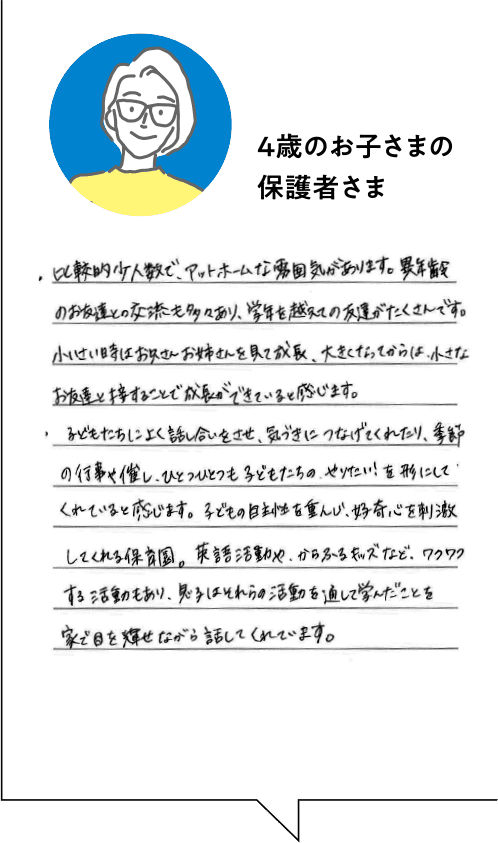 4歳のお子さまの
保護者さま
・比較的少人数で、アットホームな雰囲気があります。異年齢
のお友達との交流も多々あり、学年を越えての友達がたくさんです。
小さい時はお兄さんお姉さんを見て成長、大きくなってからは、小さな
お友達と接することで成長ができていると感じます。
・子どもたちによく話し合いをさせ、気づきにつなげてくれたり、季節
の行事や催し、ひとつひとつも子どもたちの、やりたい!を形にして
くれていると感じます。子どもの自主性を重んじ、好奇心を刺激
してくれる保育園。英語活動や、からふるキッズなど、ワクワク
する活動もあり、息子はそれらの活動を通して学んだことを
家で目を輝せながら話してくれています。